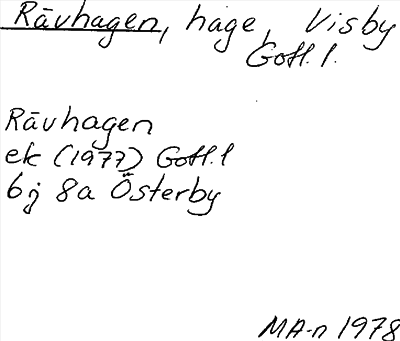 Rävhagen, hage, Visby
Gotl. l.
Rävhagen
ek (1977) Gotl. l
6j 8a Österby
MA-n 1978